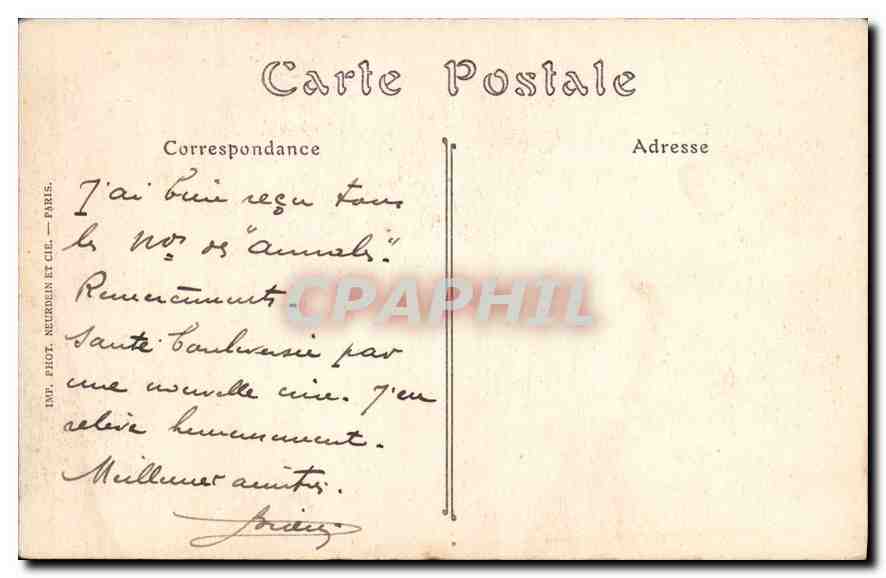 Carte Postale
Correspondance
Adresse
IMP. PHOT. NEURDEIN ET CIE. — PARIS.
J'ai bien reçu tous
les Nos des "Annales".
Remerciements.
Santé bouleversée par
une nouvelle crise. J'en
relève heureusement.
Meilleures amitiés.
CPAPHIL